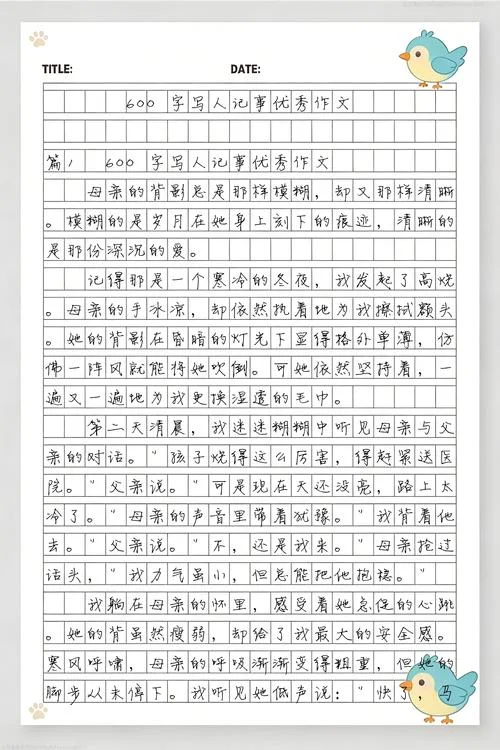 TITLE: DATE:
600 字写人记事优秀作文
篇1 600 字写人记事优秀作文
母亲的背影总是那样模糊，却又那样清晰
。模糊的是岁月在她身上刻下的痕迹，清晰的
是那份深沉的爱。
记得那是一个寒冷的冬夜，我发起了高烧
。母亲的手冰凉，却依然执着地为我擦拭额头
。她的背影在昏暗的灯光下显得格外单薄，仿
佛一阵风就能将她吹倒。可她依然坚持着，一
遍又一遍地为我更换湿透的毛巾。
第二天清晨，我迷迷糊糊中听见母亲与父
亲的对话。"孩子烧得这么厉害，得赶紧送医
院。"父亲说。"可是现在天还没亮，路上太
冷了。"母亲的声音里带着犹豫。"我背着他
去。"父亲说。"不，还是我来。"母亲抢过
话头，"我力气虽小，但总能把他抱稳。"
我躺在母亲的怀里，感受着她急促的心跳
。她的背虽然瘦弱，却给了我最大的安全感。
寒风呼啸，母亲的呼吸渐渐变得粗重，但她的
脚步从未停下。我听见她低声说："快了，马